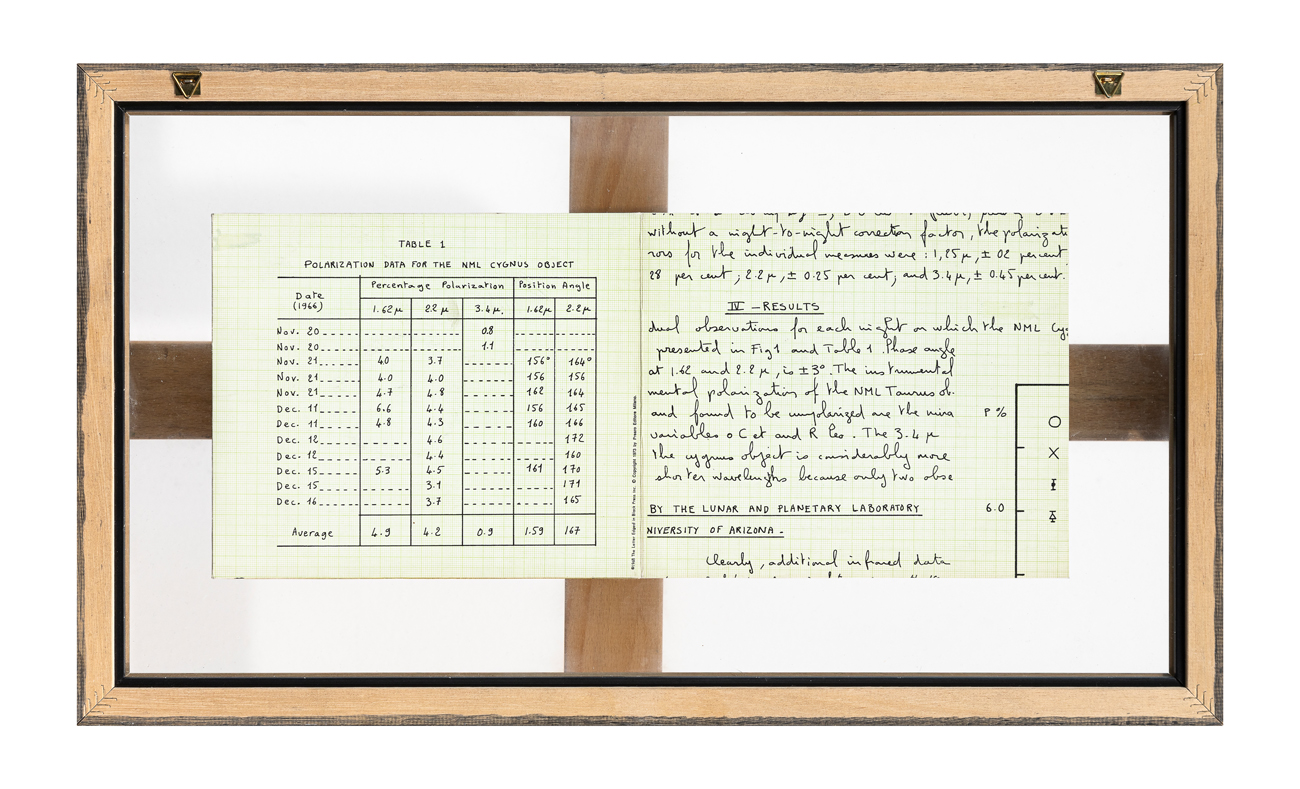 TABLE 1
POLARIZATION DATA FOR THE NML CYGNUS OBJECT
Date (1966) Percentage Polarization Position Angle
1.62μ 2.2 μ 3.4 μ. 1.62μ 2.2 μ
Nov. 20 ---- ---- 0.8 ---- ----
Nov. 20 ---- ---- 1.1 ---- ----
Nov. 21 4.0 3.7 ---- 156° 164°
Nov. 21 4.0 4.0 ---- 156 156
Nov. 21 4.7 4.8 ---- 162 164
Dec. 11 6.6 4.4 ---- 156 165
Dec. 11 4.8 4.3 ---- 160 166
Dec. 12 ---- 4.6 ---- ---- 172
Dec. 12 ---- 4.4 ---- ---- 160
Dec. 15 5.3 4.5 ---- 161 170
Dec. 15 ---- 3.1 ---- ---- 171
Dec. 16 ---- 3.7 ---- ---- 165
Average 4.9 4.2 0.9 1.59 167
without a night-to-night correction factor, the polarizati
rors for the individual measures were : 1,25 μ, ± 02 percent
28 per cent ; 2.2 μ, ± 0.25 per cent ; and 3.4 μ, ± 0.45 per cent.
IV - RESULTS
dual observations for each night on which the NML Cyg
presented in Fig 1 and Table 1. Phase angle
at 1.62 and 2.2 μ, is ± 3°. The instrumental
mental polarization of the NML Taurus ob.
and found to be unpolarized are the mira
variables o Cet and R Leo. The 3.4 μ
the cygnus object is considerably more
shorter wavelengths because only two obse
P %
6.0
BY THE LUNAR AND PLANETARY LABORATORY
NIVERSITY OF ARIZONA -
Clearly, additional infrared data